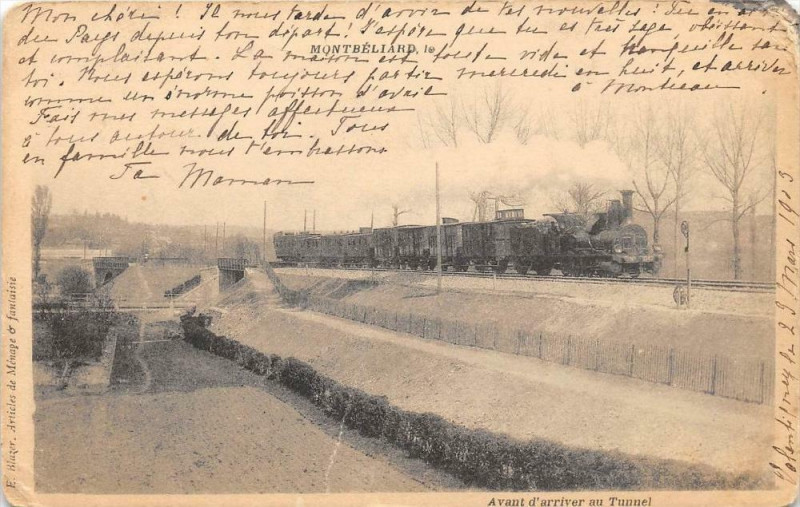 Mon chéri ! Il nous tarde d'avoir de tes nouvelles ! Tu en as
du Pays depuis ton départ. J'espère que tu es très sage, obéissant
MONTBÉLIARD, le
et complaisant. La maison est toute vide et tranquille sans
toi. Nous espérons toujours partir mercredi en huit, et arriver
comme un énorme poisson d'avril à
Fais mes messages affectueux
à tous autour de toi. Tous
en famille nous t'embrassons
Ta Maman
E. Blazer, Articles de Ménage & fantaisie
Valentigney le 23 Mars 1903
Avant d'arriver au Tunnel